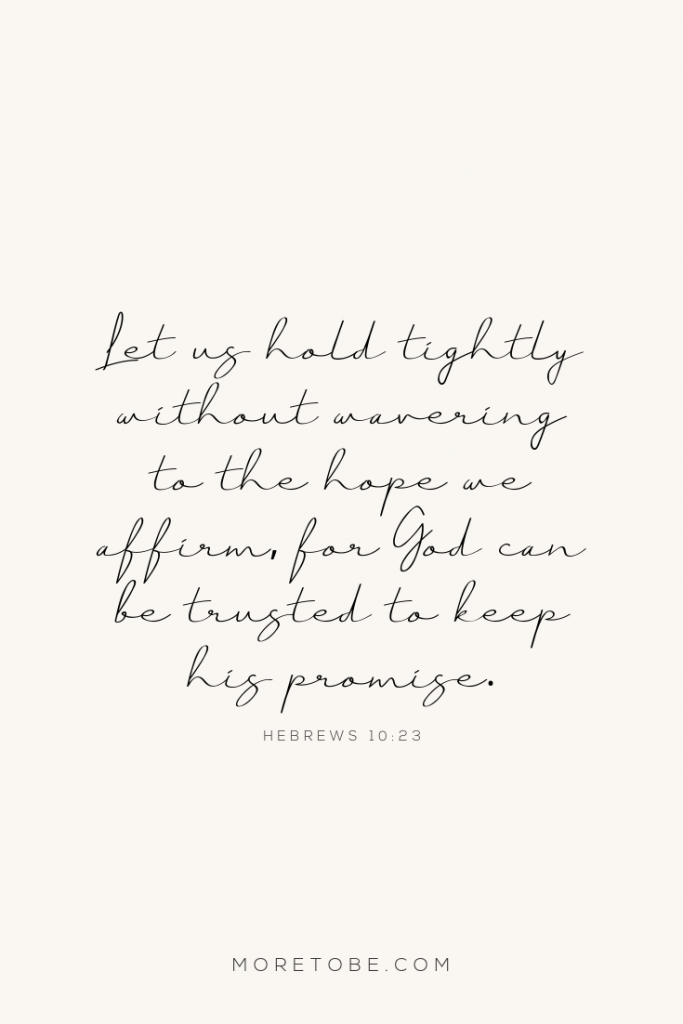 Let us hold tightly
without wavering
to the hope we
affirm, for God can
be trusted to keep
his promise.
HEBREWS 10:23
MORETOBE.COM